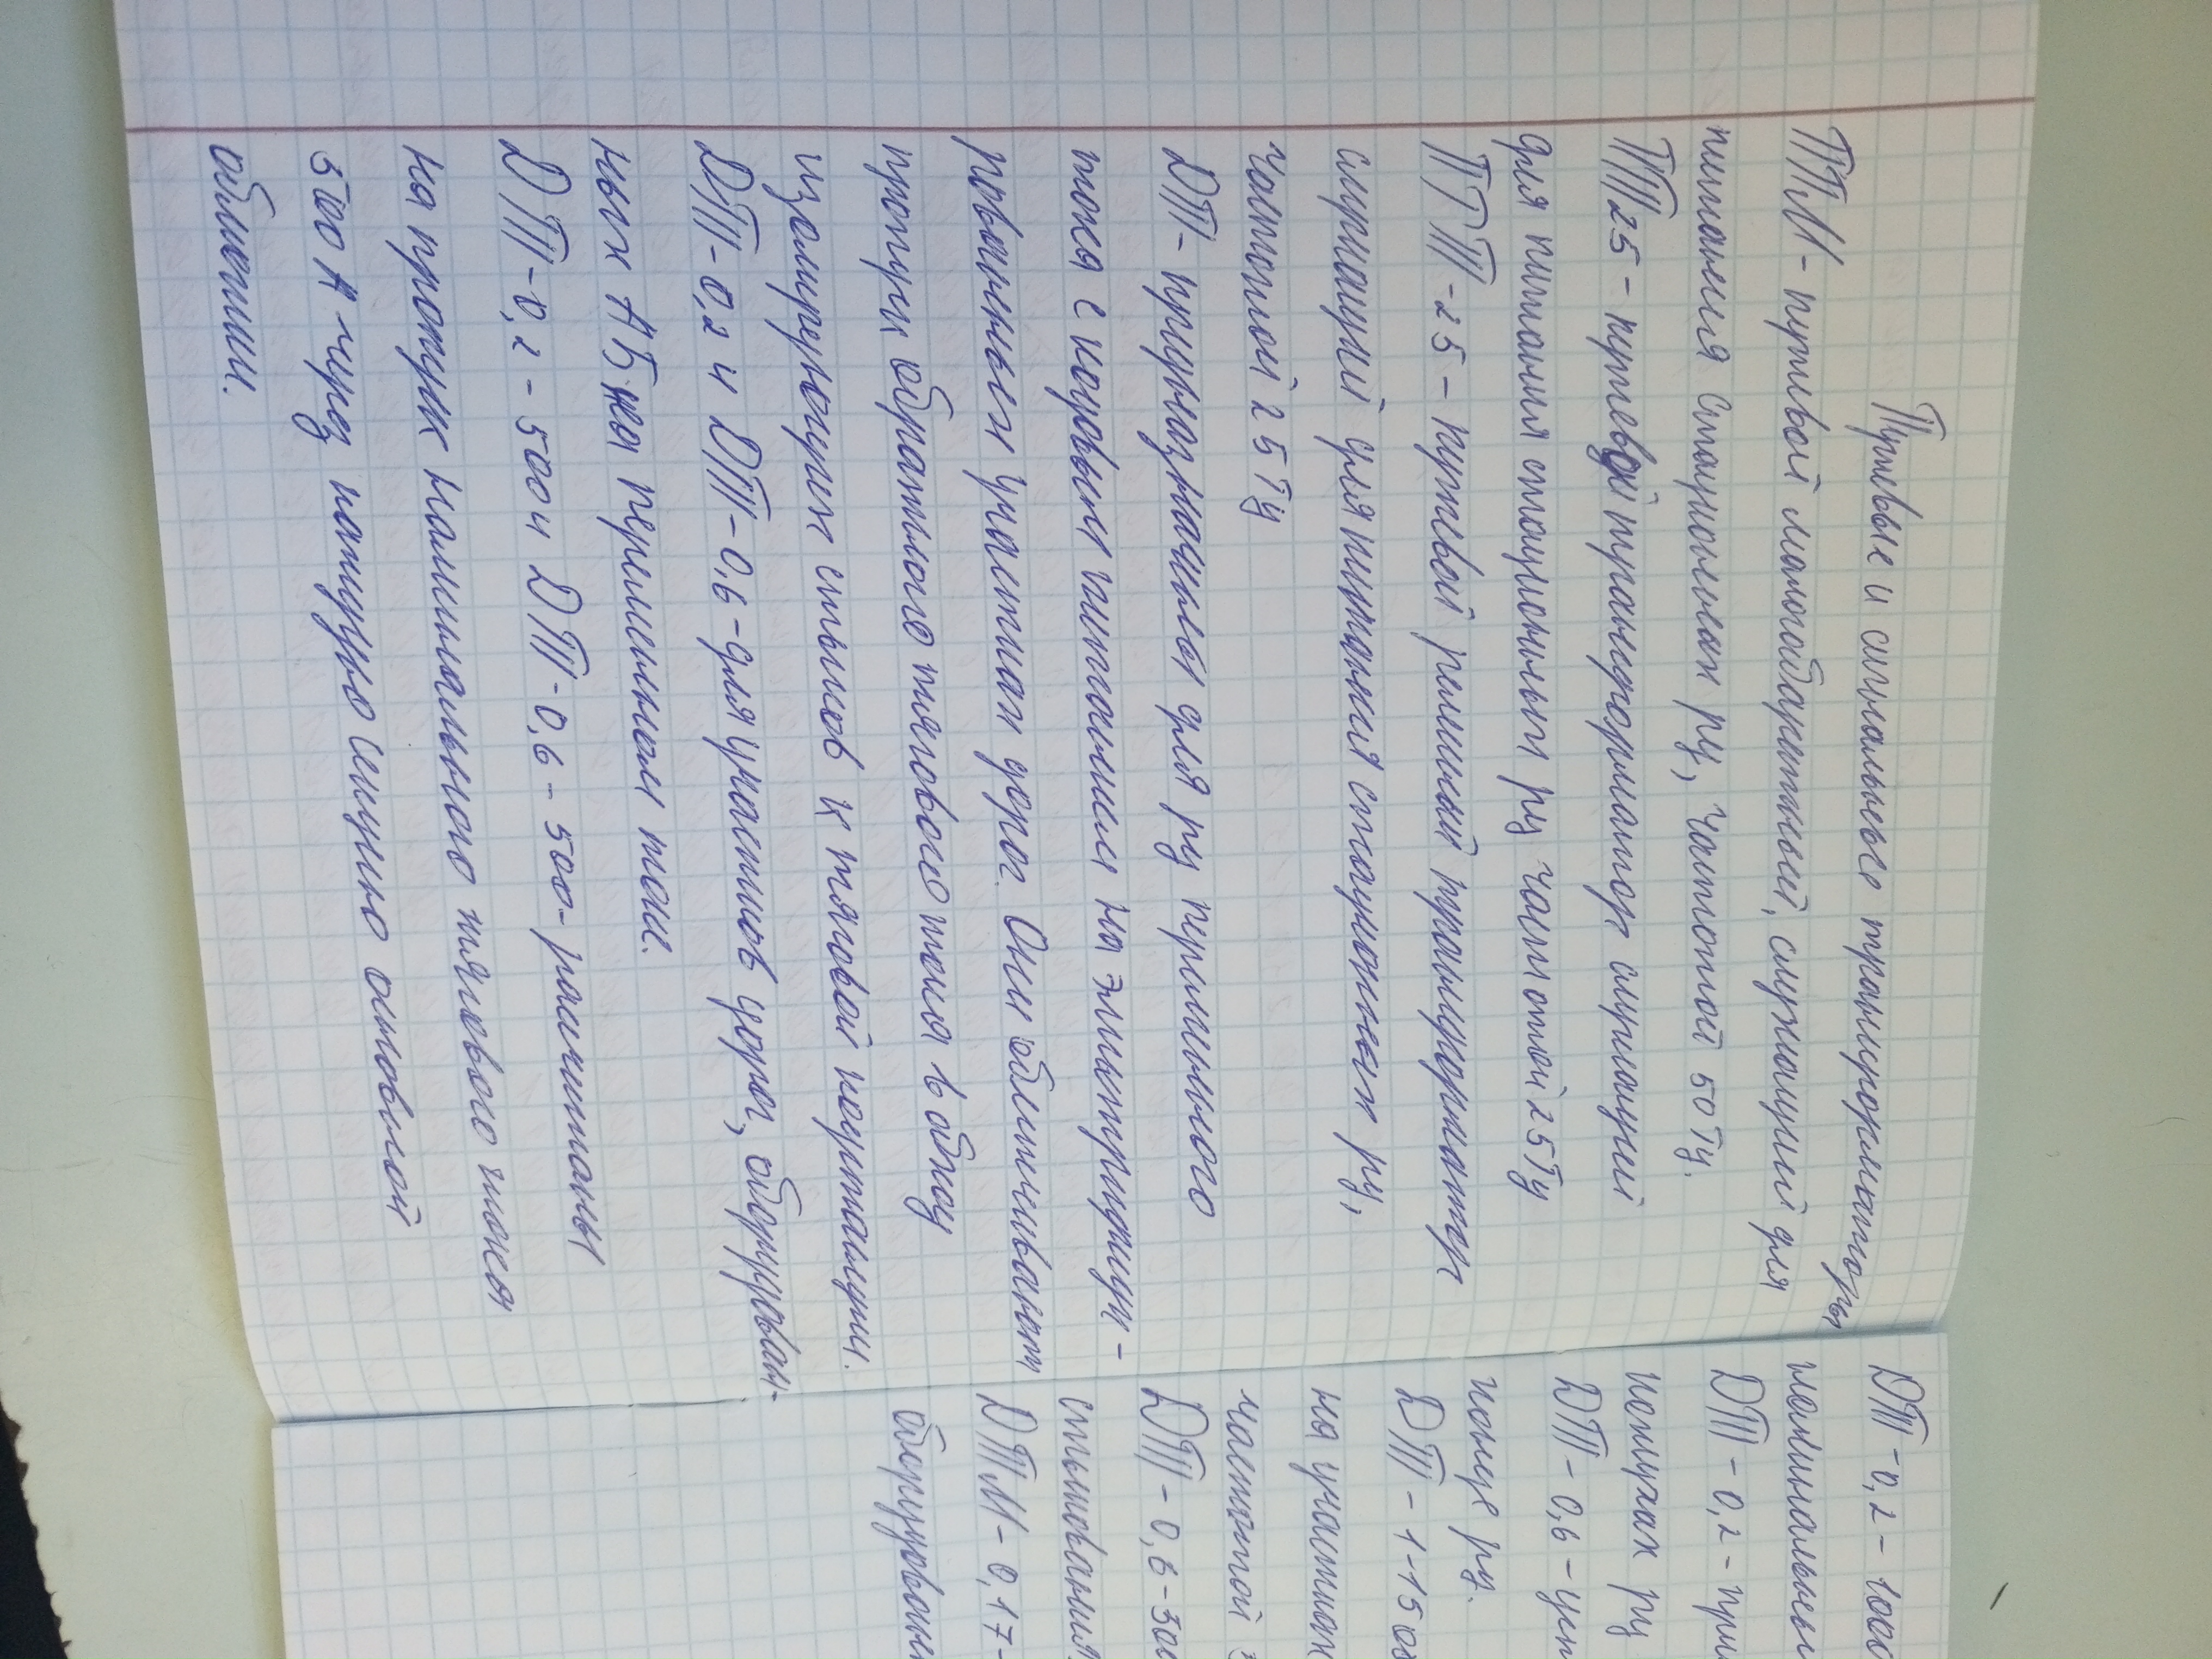 Путевые и сигнальные трансформаторы
ПТМ - путевой малогабаритный, служащий для
питания станционных рц, частотой 50 Гц.
ПТ25 - путевой трансформатор служащий
для питания станционным рц частотой 25 Гц
ПРТ-25 - путевой релейный трансформатор
служащий для питания станционных рц,
частотой 25 Гц
ДТ - предназначены для рц переменного
тока с кодовым питанием на электрифици-
рованных участках дорог. Они обеспечивают
пропуск обратного тягового тока в обход
изолирующих стыков к тяговой подстанции.
ДТ-0,2 и ДТ-0,6 - для участков дорог, оборудован-
ных АБ на переменном токе.
ДТ-0,2-500 и ДТ-0,6-500 - расчитаны
на протук наминального тягового тока
500 А через каждую секцию основной
обмотки.
ДТ-0,2-1000
наминальны
ДТ-0,2 - при
концах рц
ДТ-0,6 - уст
конце рц.
ДТ-1-150
на участках
частотой
ДТ-0,6-500
стыкования
ДТМ-0,17-
оборудован